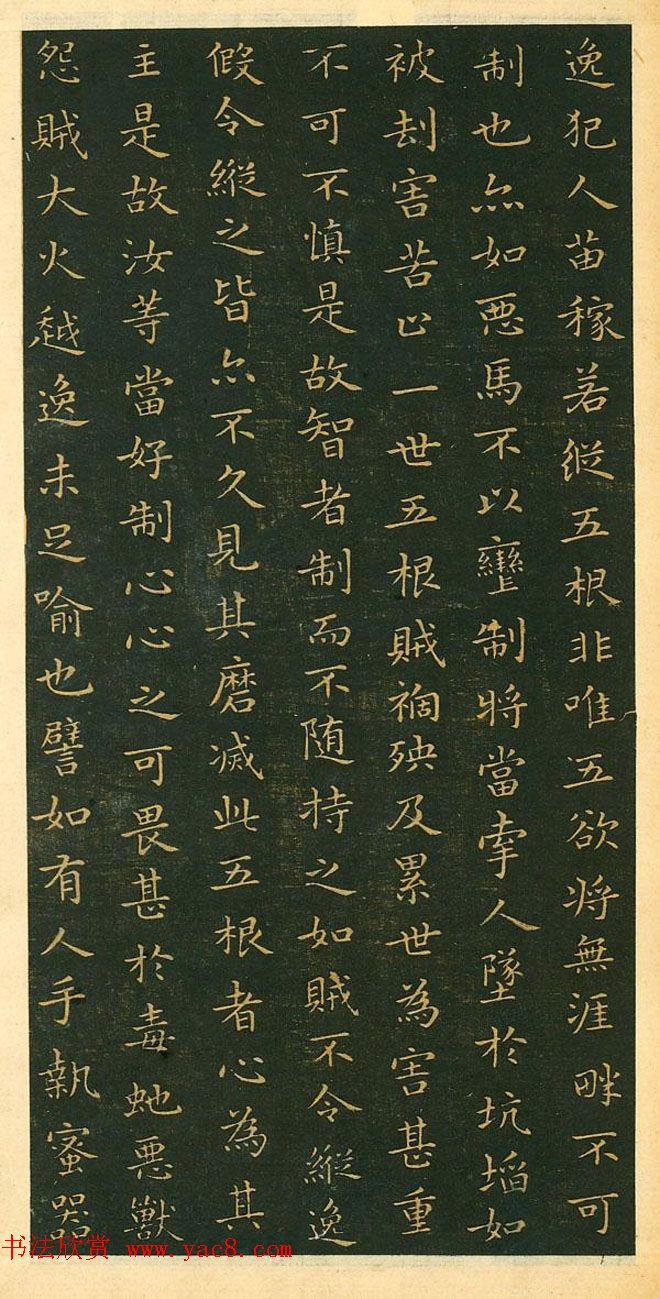 逸犯人苗稼若縱五根非唯五欲將無涯畔不可
制也亦如惡馬不以轡制將當牽人墜於坑埳如
被刦害苦止一世五根賊禍殃及累世為害甚重
不可不慎是故智者制而不随持之如賊不令縱逸
假令縱之皆亦不久見其磨滅此五根者心為其
主是故汝等當好制心心之可畏甚於毒虵惡獸
怨賊大火越逸未足喻也譬如有人手執蜜器
书法欣赏 www.yac8.com